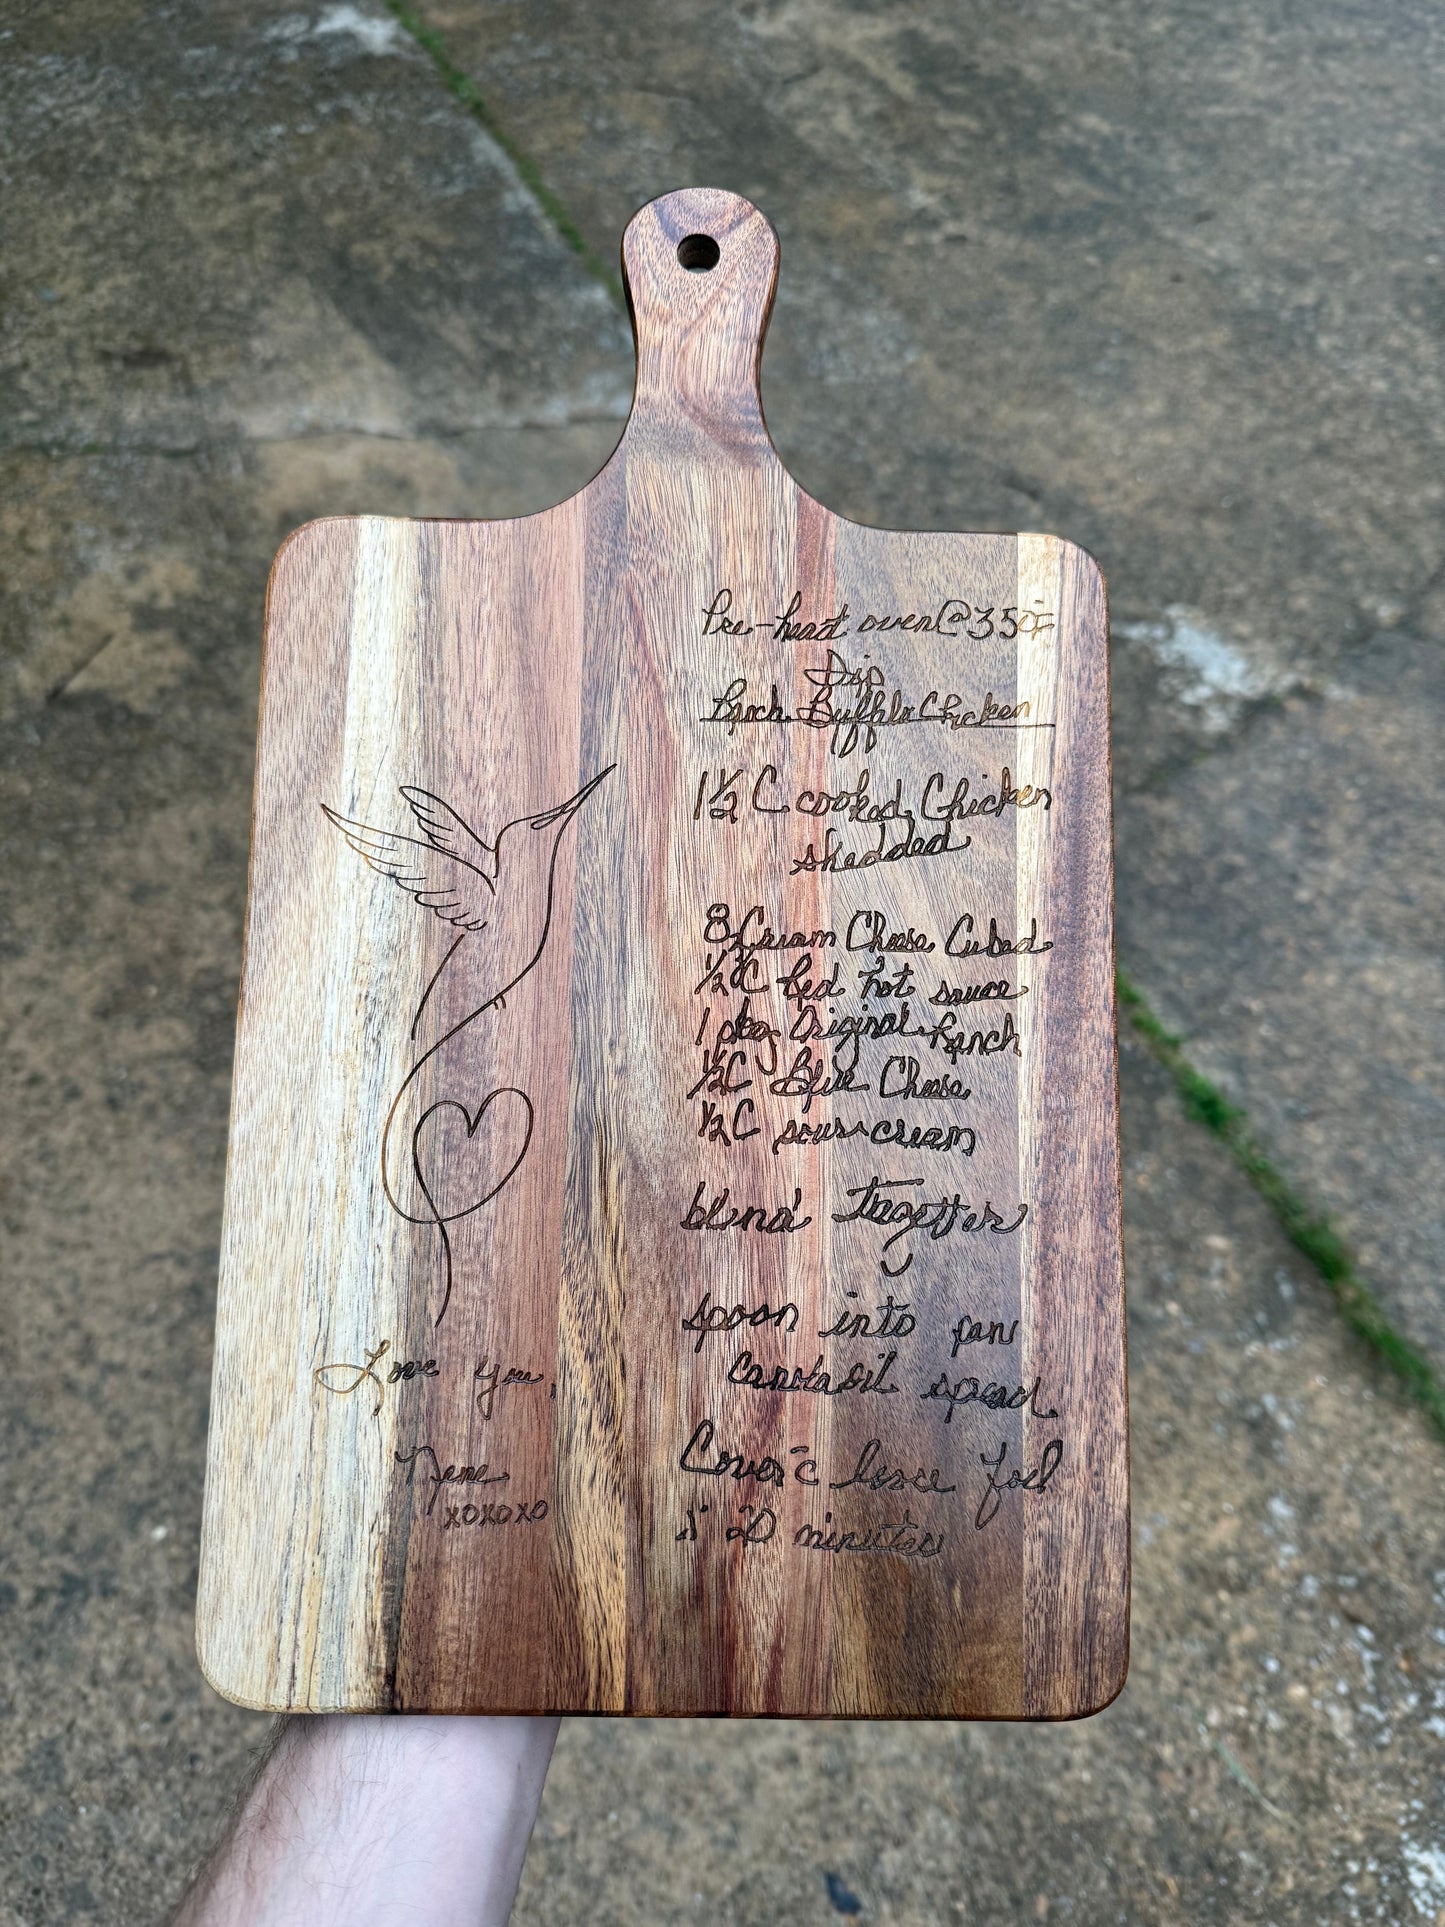 Pre-heat oven @ 350°F
Dip
Ranch Buffalo Chicken
1 1/2 C cooked Chicken
shedded
8 Cream Cheese Cubed
1/2 C Red hot sauce
1 pkg Original Ranch
1/2 C Blue Cheese
1/2 C sour cream
blend together
spoon into pan
spread
Cover c̄ loose foil
20 minutes
Love you,
Nene
xoxoxo